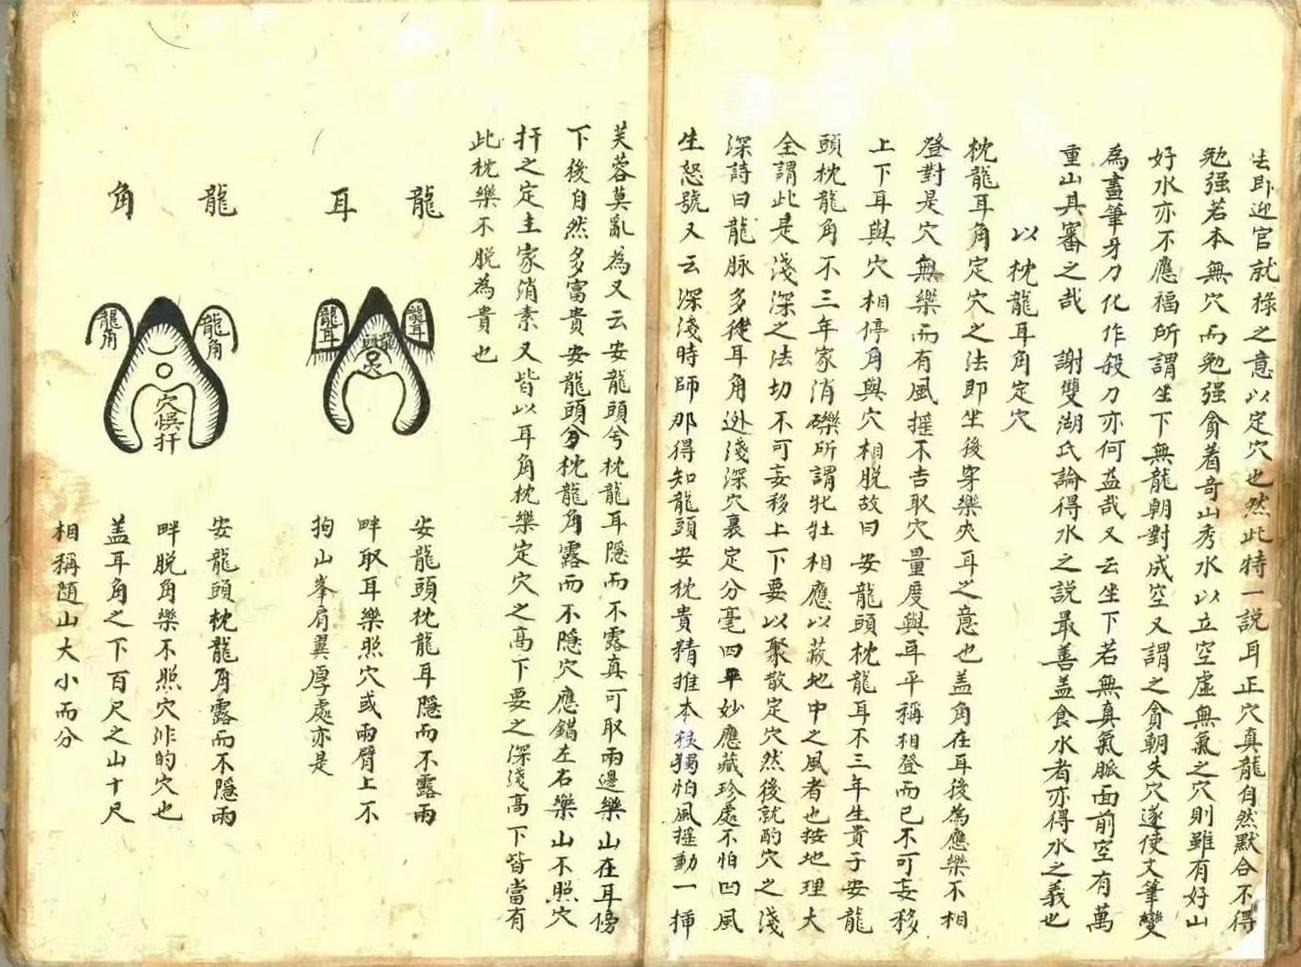 法即迎官就祿之意以定穴也然此特一説耳正穴真龍自然默合不得
勉强若本無穴而勉强貪着奇山秀水以立空虚無氣之穴則雖有好山
好水亦不應福所謂坐下無龍朝對成空又謂之貪朝失穴遂使文筆變
為畫筆牙刀化作殺刀亦何益哉又云坐下若無真氣脈面前空有萬
重山其審之哉 謝雙湖氏論得水之説最善盖食水者亦得水之義也
以枕龍耳角定穴
枕龍耳角定穴之法即坐後穿樂夾耳之意也盖角在耳後為應樂不相
登對是穴無樂而有風摇不吉取穴量度與耳平稱相登而已不可妄移
上下耳與穴相停角與穴相脱故曰安龍頭枕龍耳不三年生貴子安龍
頭枕龍角不三年家消礫所謂牝牡相應以蔵地中之風者也按地理大
全謂此是淺深之法切不可妄移上下要以聚散定穴然後就酌穴之淺
深詩曰龍脉多從耳角遊淺深穴裏定分毫四平妙應藏珍處不怕凹風
生怒號又云深淺時師那得知龍頭安枕貴精推本枝獨怕風摇動一揷
芙蓉莫亂為又云安龍頭兮枕龍耳隱而不露真可取兩邊樂山在耳傍
下後自然多富貴安龍頭兮枕龍角露而不隱穴應錯左右樂山不照穴
扦之定主家消素又皆以耳角枕樂定穴之高下要之深淺高下皆當有
此枕樂不脱為貴也
龍耳
龍耳
龍耳
安龍頭枕龍耳隱而不露兩
畔取耳樂照穴或兩臂上不
拘山峯肩翼厚處亦是
龍角
龍角
龍角
穴悞扦
安龍頭枕龍角露而不隱兩
畔脱角樂不照穴非的穴也
盖耳角之下百尺之山十尺
相稱随山大小而分